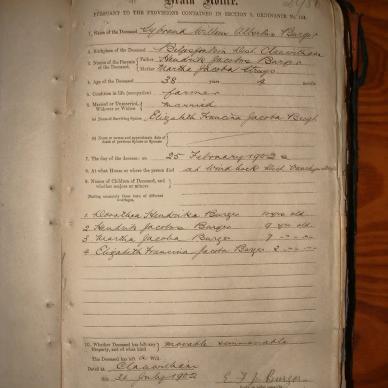 Death Notice.
PURSUANT TO THE PROVISIONS CONTAINED IN SECTION 9, ORDINANCE No. 104.
1. Name of the Deceased Sybrand Willem Albertus Burger
2. Birthplace of the Deceased Dist Clanwilliam
3. Names of the Parents of the Deceased. Father Hendrik Jacobus Burger
Mother Martha Jacoba
4. Age of the Deceased 38 years months
5. Condition in life (occupation) farmer
6. Married or Unmarried, Widower or Widow married
(a) Name of Surviving Spouse Elizabeth Francina Jacoba
(b) Name or names and approximate date of death of previous Spouse or Spouses
7. The day of the decease: on 25 February 1902
8. At what House or where the person died at Dist
9. Names of Children of Deceased, and whether majors or minors
1 Dorothea Hendrika Burger 10 yrs old
2 Hendrik Jacobus Burger 9 yrs old
3 Martha Jacoba Burger
4 Elizabeth Francina Jacoba Burger 2
10. Whether Deceased has left any Property, and of what kind movable immovable
The Deceased has left a Will.
Dated at Clanwilliam
26 July 1902
E F J Burger